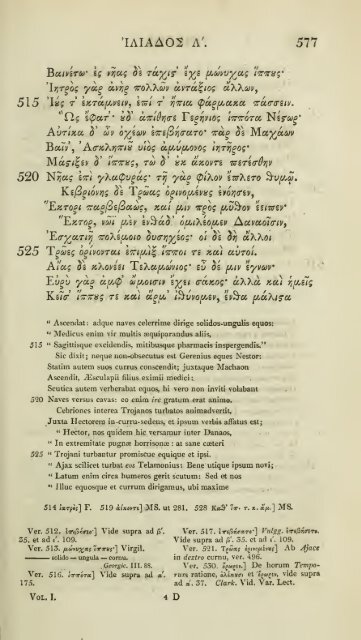 ἸΛΙΑΔΟΣ Λ΄. 577
Βαινέτω· ἐς νῆας δὲ τάχιστ’ ἔχε μώνυχας ἵππους·
Ἰητρὸς γὰρ ἀνὴρ πολλῶν ἀντάξιος ἄλλων,
515 Ἰούς τ’ ἐκτάμνειν, ἐπί τ’ ἤπια φάρμακα πάσσειν.
Ὣς ἔφατ’· οὐδ’ ἀπίθησε Γερήνιος ἱππότα Νέστωρ·
Αὐτίκα δ’ ὧν ὀχέων ἐπεβήσατο· πὰρ δὲ Μαχάων
Βαῖν’, Ἀσκληπιοῦ υἱὸς ἀμύμονος ἰητῆρος·
Μάστιξεν δ’ ἵππους, τὼ δ’ οὐκ ἄκοντε πετέσθην
520 Νῆας ἐπὶ γλαφυράς· τῇ γὰρ φίλον ἔπλετο θυμῷ.
Κεβριόνης δὲ Τρῶας ὀρινομένους ἐνόησεν,
Ἕκτορι παρβεβαὼς, καί μιν πρὸς μῦθον ἔειπεν·
Ἕκτορ, νῶϊ μὲν ἐνθάδ’ ὁμιλέομεν Δαναοῖσιν,
Ἐσχατιῇ πολέμοιο δυσηχέος· οἱ δὲ δὴ ἄλλοι
525 Τρῶες ὀρίνονται ἐπιμὶξ ἵπποι τε καὶ αὐτοί.
Αἴας δὲ κλονέει Τελαμώνιος· εὖ δέ μιν ἔγνων·
Εὐρὺ γὰρ ἀμφ’ ὤμοισιν ἔχει σάκος· ἀλλὰ καὶ ἡμεῖς
Κεῖσ’ ἵππους τε καὶ ἅρμ’ ἰθύνομεν, ἔνθα μάλιστα
“ Ascendat: adque naves celerrime dirige solidos-ungulis equos:
“ Medicus enim vir multis æquiparandus aliis,
515 “ Sagittisque excidendis, mitibusque pharmacis inspergendis.”
Sic dixit; neque non-obsecutus est Gerenius eques Nestor:
Statim autem suos currus conscendit; juxtaque Machaon
Ascendit, Æsculapii filius eximii medici:
Scutica autem verberabat equos, hi vero non inviti volabant
520 Naves versus cavas: eo enim ire gratum erat animo.
Cebriones interea Trojanos turbatos animadvertit,
Juxta Hectorem in-curru-sedens, et ipsum verbis affatus est;
“ Hector, nos quidem hic versamur inter Danaos,
“ In extremitate pugnæ horrisonæ: at sane cæteri
525 “ Trojani turbantur promiscue equique et ipsi.
“ Ajax scilicet turbat eos Telamonius: Bene utique ipsum novi;
“ Latum enim circa humeros gerit scutum: Sed et nos
“ Illuc equosque et currum dirigamus, ubi maxime
514 ἰατρὸς] F. 519 ἀέκοντε] MS. ut 281. 528 Κεῖθ’ ἵπ. τ. κ. ἅρ.] MS.
Ver. 512. Vide supra ad β΄. 35. et ad ε΄. 109.
Ver. 513. μώνυχας ἵππους·] Virgil.
—— solido — ungula — cornu.
Georgic. III. 88.
Ver. 516. ἱππότα] Vide supra ad α΄. 175.
Ver. 517. Vulgg. Vide supra ad β΄. 35. et ad ε΄. 109.
Ver. 521. Τρῶας ὀρινομένους] Ab Ajace in dextro cornu, ver. 496.
Ver. 530. De horum Temporum ratione, vide supra ad α΄. 37. Clark. Vid. Var. Lect.
VOL. I. 4 D